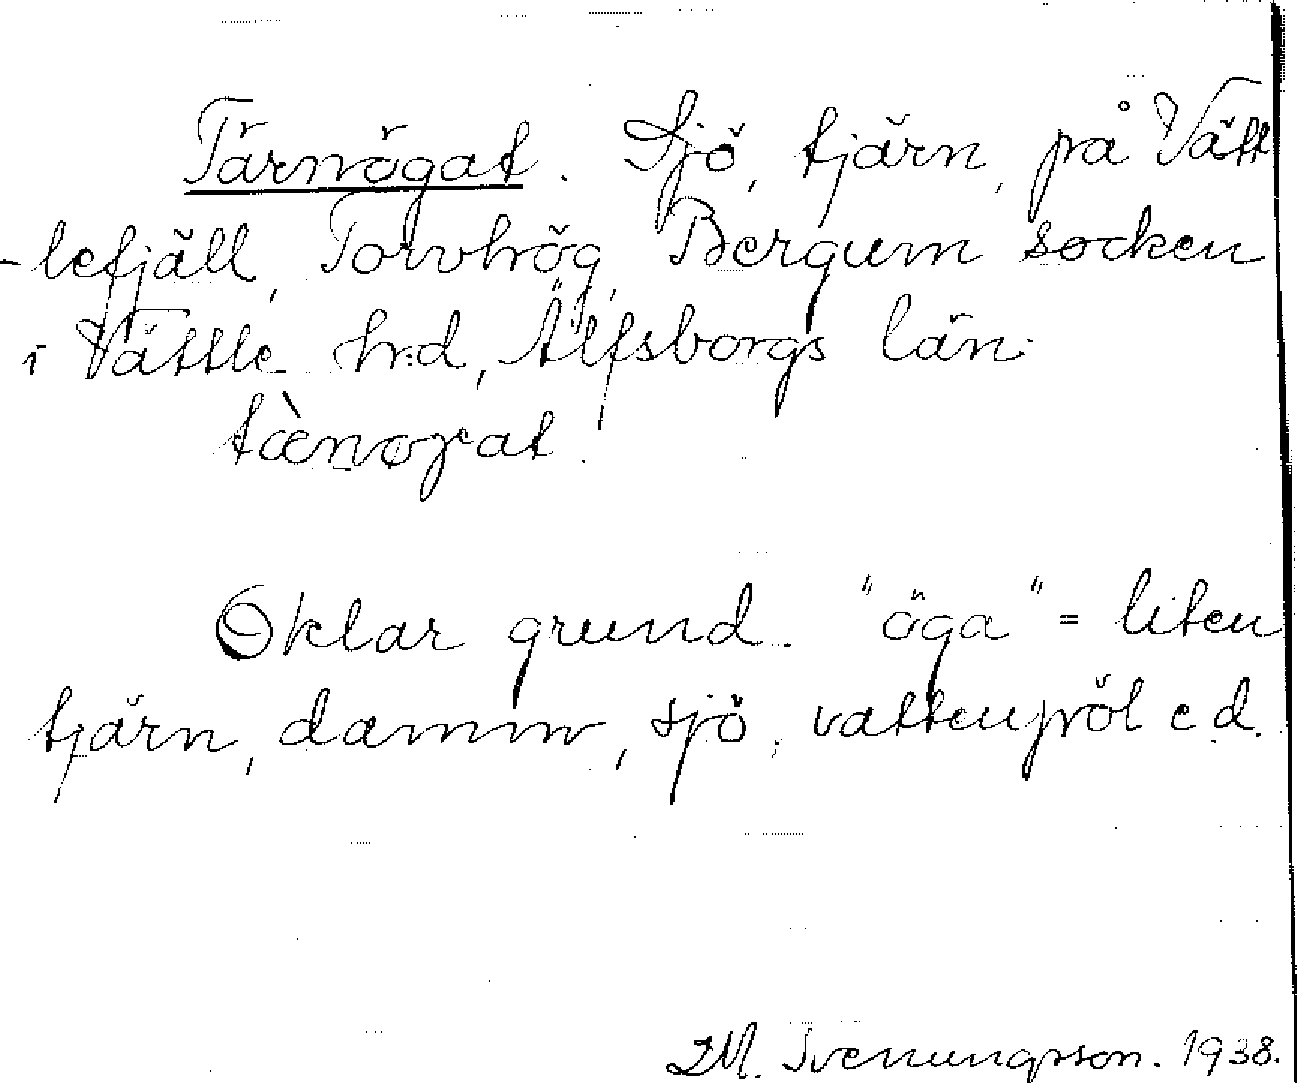 Tärnögat. Sjö, tjärn, på Vätt
-lefjäll, Torvhög, Bergum socken
i Vättle hrd, Älfsborgs län.
tæ̀nøgat.
Oklar grund. "öga" = liten
tjärn, damm, sjö, vattenpöl e d.
I.M. Svenungsson. 1938.